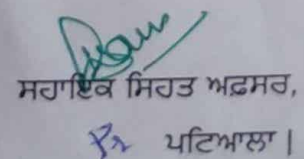 ਸਹਾਇਕ ਸਿਹਤ ਅਫ਼ਸਰ,
ਪਟਿਆਲਾ |